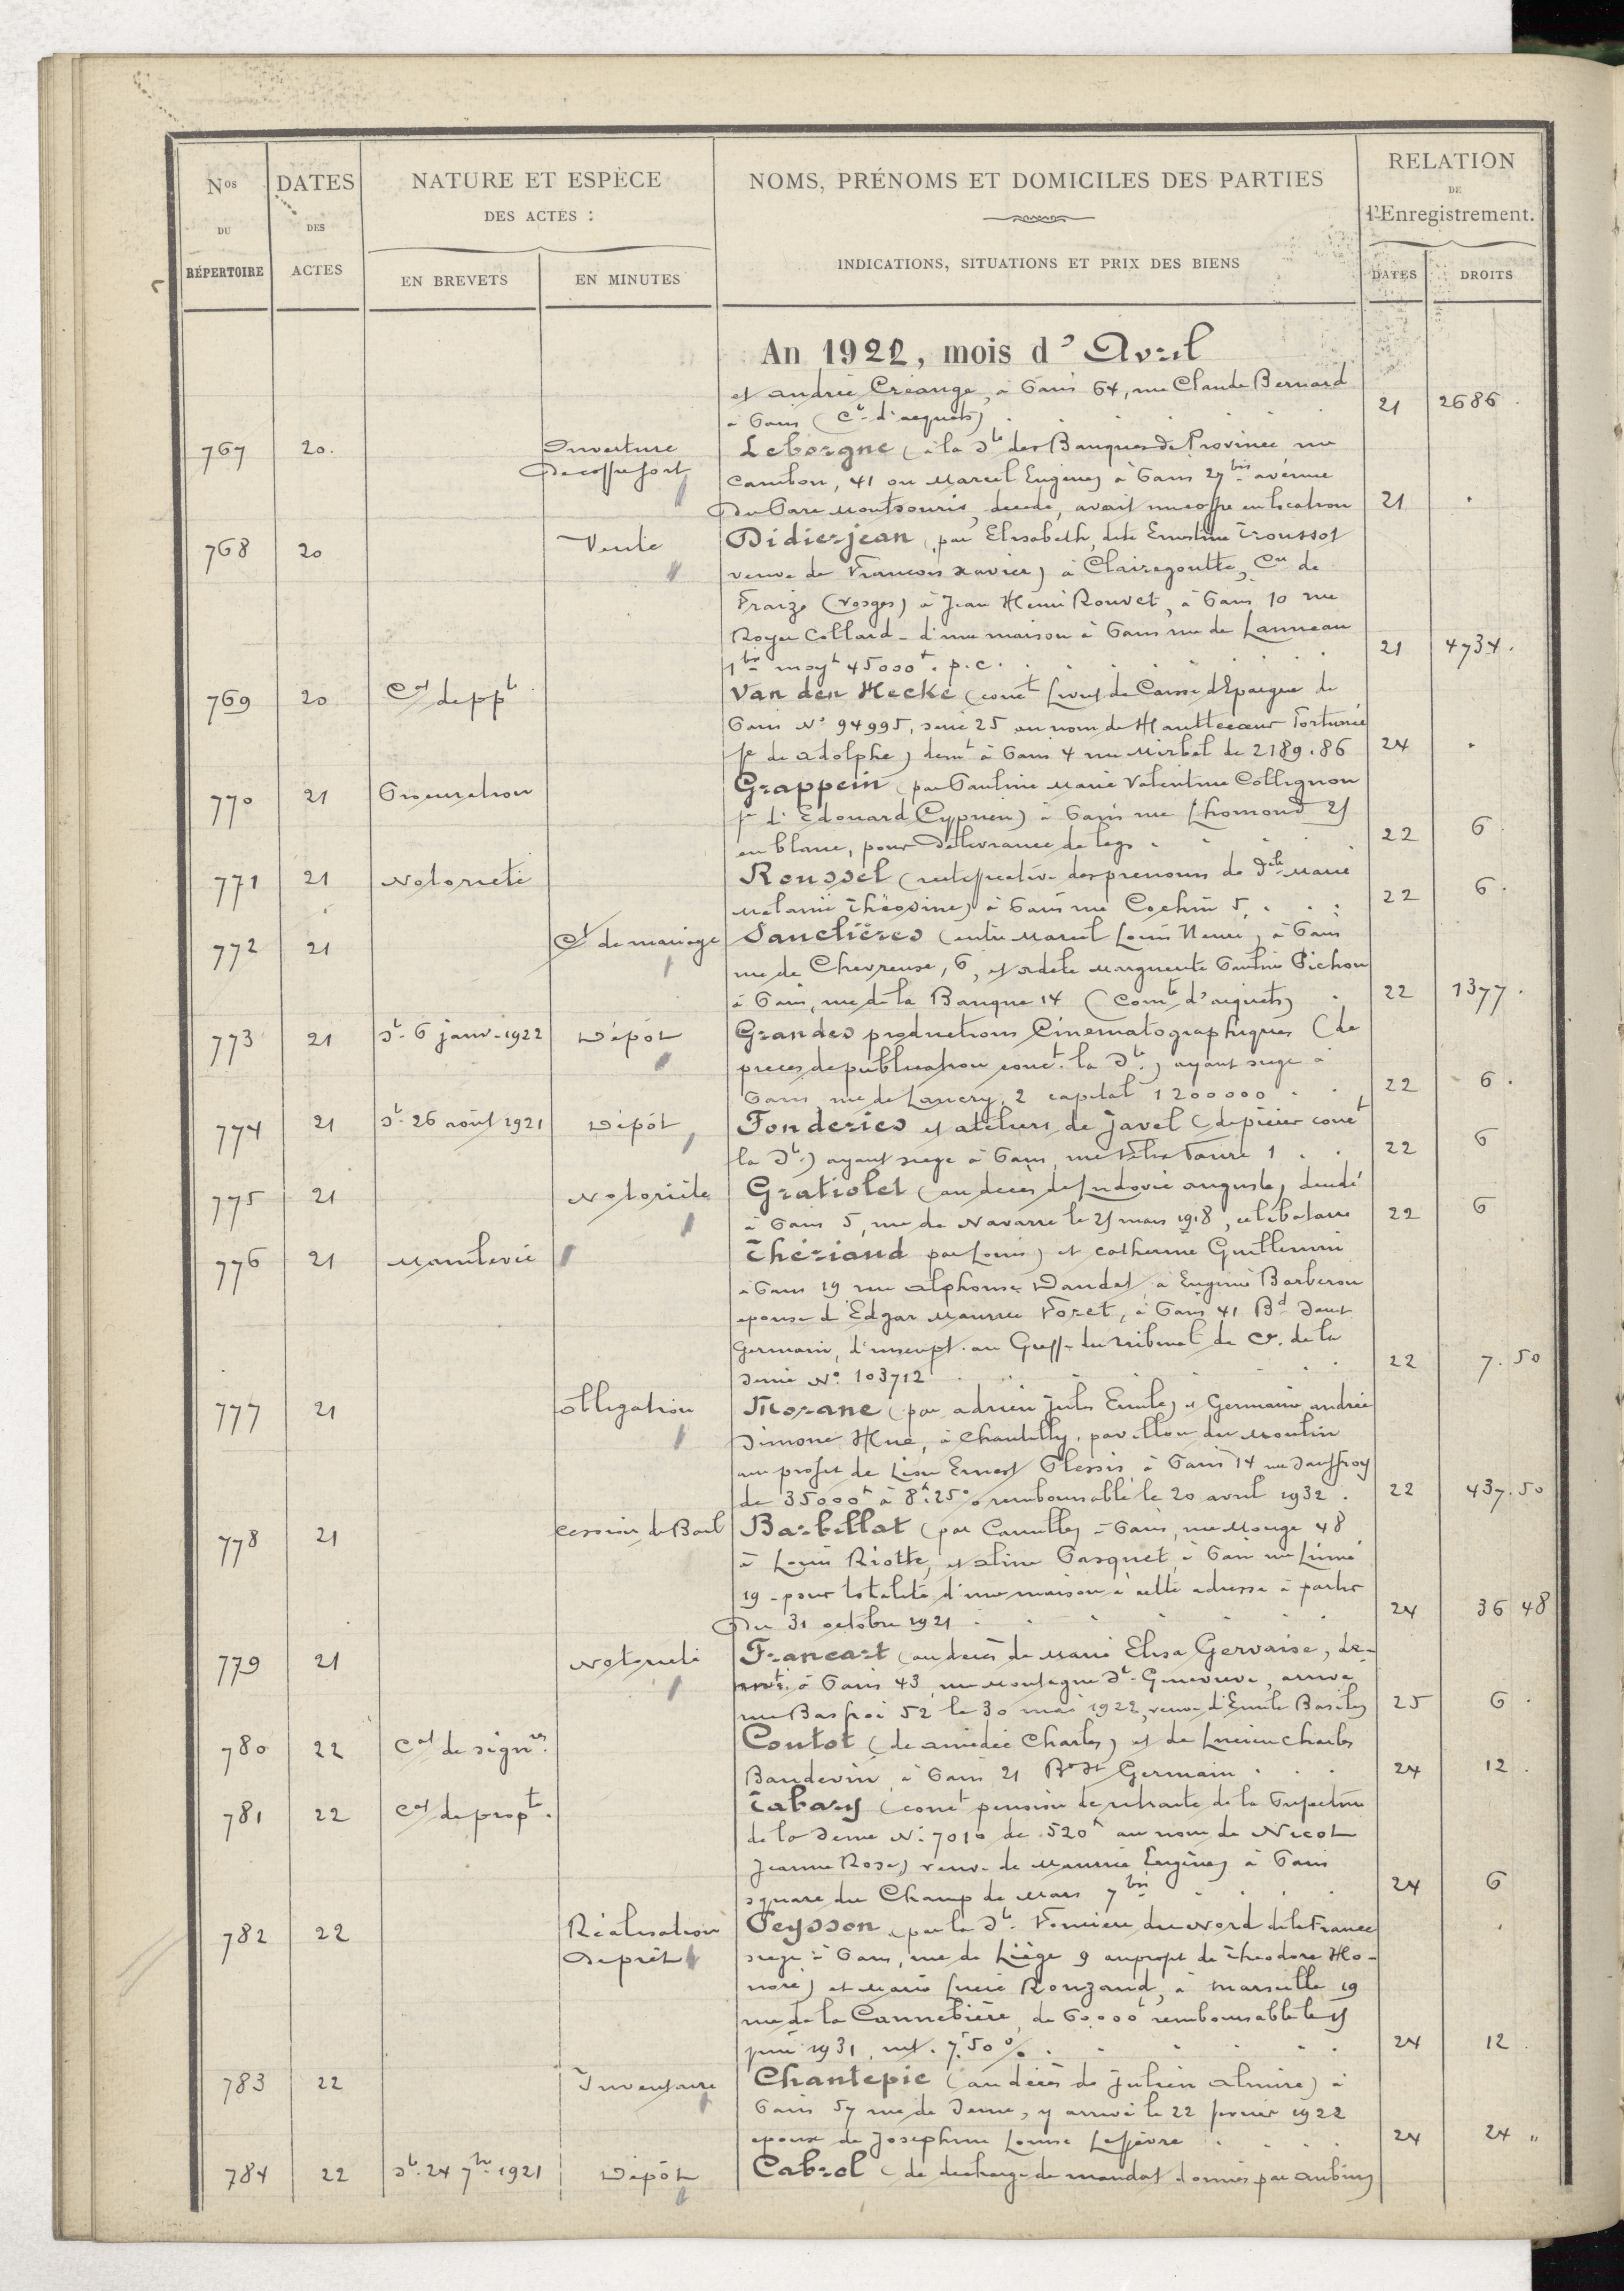 Nos DU RÉPERTOIRE
DATES DES ACTES
NATURE ET ESPÈCE DES ACTES :
EN BREVETS
EN MINUTES
NOMS, PRÉNOMS ET DOMICILES DES PARTIES
INDICATIONS, SITUATIONS ET PRIX DES BIENS
RELATION DE l'Enregistrement.
DATES
DROITS
An 1922, mois d'Avril
et Andrée Créange, à Paris 64, rue Claude Bernard
à Paris (Cté d'acquets) 21 2686
767 20. Ouverture Leborgne (à la Sté des Banques de Province rue
de coffre fort Cambon, 41 ou Marcel Eugène) à Paris 27bis avenue
du Parc Montsouris, décédé, avait un coffre en location 21
768 20 Vente Didierjean (par Elisabeth, dite Ernestine Troussot
veuve de François Xavier) à Clairegoutte, Cne de
Fraize (Vosges) à Jean Henri Rouvet, à Paris 10 rue
Royer Collard - d'une maison à Paris rue de Lanneau
1bis moyt 45000f. p.c. 21 4734.
769 20 Cat de ppté Van den Hecke (conct livret de Caisse d'Epargne de
Paris No 94995, série 25 au nom de Hauttecœur Fortunée
fe de Adolphe) demt à Paris 4 rue Mirbel de 2189.86 24
770 21 Procuration Grappein (par Pauline Marie Valentine Collignon
fe d'Edouard Cyprien) à Paris rue Lhomond 25
en blanc, pour délivrance de legs 22 6
771 21 Notoriété Roussel (rectificative des prénoms de Dlle Marie
Mélanie Théosine) à Paris rue Cochin 5. 22 6.
772 21 Ct de mariage Sanclières (entre Marcel Louis Henri, à Paris
rue de Chevreuse, 6, et Adèle Marguerite Pauline Pichon
à Paris, rue de la Banque 14 (Comté d'acquets) 22 1377.
773 21 St. 6 janv. 1922 Dépôt Grandes productions Cinématographiques (de
pièces de publication conct. la Sté.) ayant siège à
Paris rue de Lancry, 2 capital 1200000 22 6.
774 21 St. 26 août 1921 Dépôt Fonderies et ateliers de Javel (de pièces conct
la Sté.) ayant siège à Paris, rue Félix Faure 1 22 6
775 21 Notoriété Gratiolet (au décès de Ludovic Auguste) décédé
à Paris 5, rue de Navarre le 25 mars 1918, célibataire 22 6
776 21 Mainlevée Thériaud (par Louis) et Catherine Guillemin
à Paris 19 rue Alphonse Daudet, à Eugénie Barberon
épouse d'Edgar Maurice Foret, à Paris 41 Bd Saint
Germain, d'inscript. au Greffe du tribunal de Ce. de la
Seine No. 103712 22 7.50
777 21 Obligation Morane (par Adrien Jules Emile) et Germaine Andrée
Simone Hue, à Chantilly, pavillon du Moulin
au profit de Léon Ernest Plessis, à Paris 14 rue Dauffroy
de 35000f à 8f.25% remboursable le 20 avril 1932. 22 437.50
778 21 Cession de Bail Barbillat (par Camille) à Paris, rue Monge 48
à Louis Riotte, et Aline Pasquet, à Paris rue Linné
19 - pour totalité d'une maison à cette adresse à partir
du 31 octobre 1921 24 36 48
779 21 Notoriété Francart (au décès de Marie Elisa Gervaise, de-
mt. à Paris 43, rue Montagne Ste. Geneviève, arrivé
rue Basfroi 52 le 30 mai 1922, veuve d'Emile Basile) 25 6.
780 22 Cat de signres. Coutot (de Amédée Charles) et de Lucien Charles
Baudevin à Paris 21 Bd St Germain 24 12.
781 22 Cat de propté. Tabary (conct pension de retraite de la Préfecture
de la Seine No. 7010 de 520f au nom de Nicot
Jeanne Rose) veuve de Maurice Eugène) à Paris
square du Champ de Mars 7bis 24 6
782 22 Réalisation Peysson (par la Sté. Foncière du Nord de la France
de prêt siège à Paris, rue de Liège 9 au profit de Théodore Ho-
noré) et Marie Lucie Rouzaud, à Marseille 19
rue de la Cannebière, de 60.000f remboursable le 15
juin 1931, int. 7f.50% 24 12.
783 22 Inventaire Chantepie (au décès de Julien Almire) à
Paris 57 rue de Seine, y arrivé le 22 février 1922
époux de Joséphine Louise Lefèvre 24 24 "
784 22 St. 24 7bre. 1921 Dépôt Cabrol (de décharge de mandat donnés par Aubin)